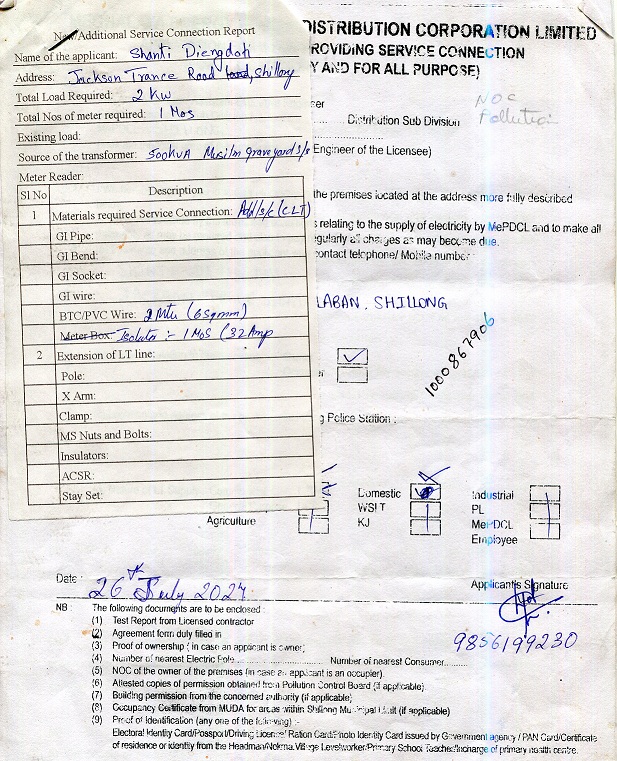 New/Additional Service Connection Report
Name of the applicant: Shanti Diengdoh
Address: Jackson Trance Road Shillong
Total Load Required: 2 KW
Total Nos of meter required: 1 Nos
Existing load:
Source of the transformer: 500KVA Musilm graveyard S/S
Meter Reader:
Sl No Description
1 Materials required Service Connection: Add/s/c (CLT)
GI Pipe:
GI Bend:
GI Socket:
GI wire:
BTC/PVC Wire: 2 Mtr (6 sqmm)
Meter Box: Isolator :- 1 Nos (32 Amp
2 Extension of LT line:
Pole:
X Arm:
Clamp:
MS Nuts and Bolts:
Insulators:
ACSR:
Stay Set:
DISTRIBUTION CORPORATION LIMITED
PROVIDING SERVICE CONNECTION
Y AND FOR ALL PURPOSE)
NOC
Pollution
Distribution Sub Division
Engineer of the Licensee)
the premises located at the address more fully described
relating to the supply of electricity by MePDCL and to make all
egularly all charges as may become due.
contact telephone/ Mobile number
LABAN, SHILLONG
1000867906
g Police Station :
Domestic Industrial
WSLT PL
Agriculture KJ MePDCL
Employee
Date : 26 July 2024 Applicant's Signature
9856199230
NB : The following documents are to be enclosed :
(1) Test Report from Licensed contractor
(2) Agreement form duly filled in
(3) Proof of ownership ( in case an applicant is owner)
(4) Number of nearest Electric Pole Number of nearest Consumer
(5) NOC of the owner of the premises (in case an applicant is an occupier).
(6) Attested copies of permission obtained from Pollution Control Board (if applicable)
(7) Building permission from the concerned authority (if applicable)
(8) Occupancy Certificate from MUDA for areas within Shillong Municipal Limit (if applicable)
(9) Proof of Identification (any one of the following) :-
Electoral Identity Card/Passport/Driving License/ Ration Card/Photo Identity Card issued by Government agency / PAN Card/Certificate
of residence or identity from the Headman/Nokma.Village Levelworker/Primary School Teacher/Incharge of primary health centre.